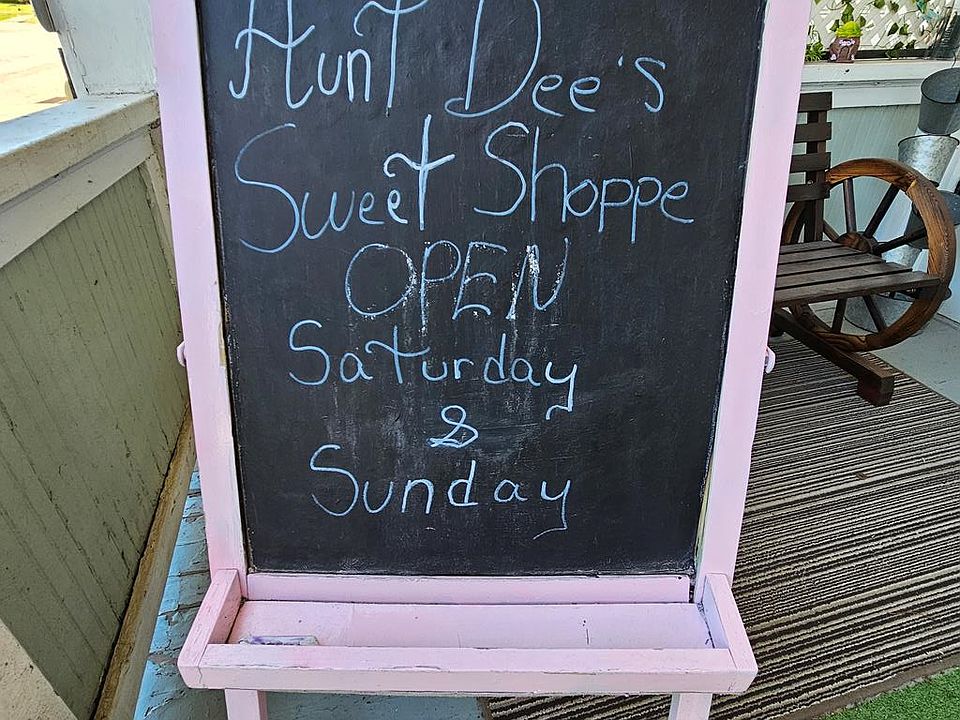 Aunt Dee's
Sweet Shoppe
OPEN
Saturday
&
Sunday